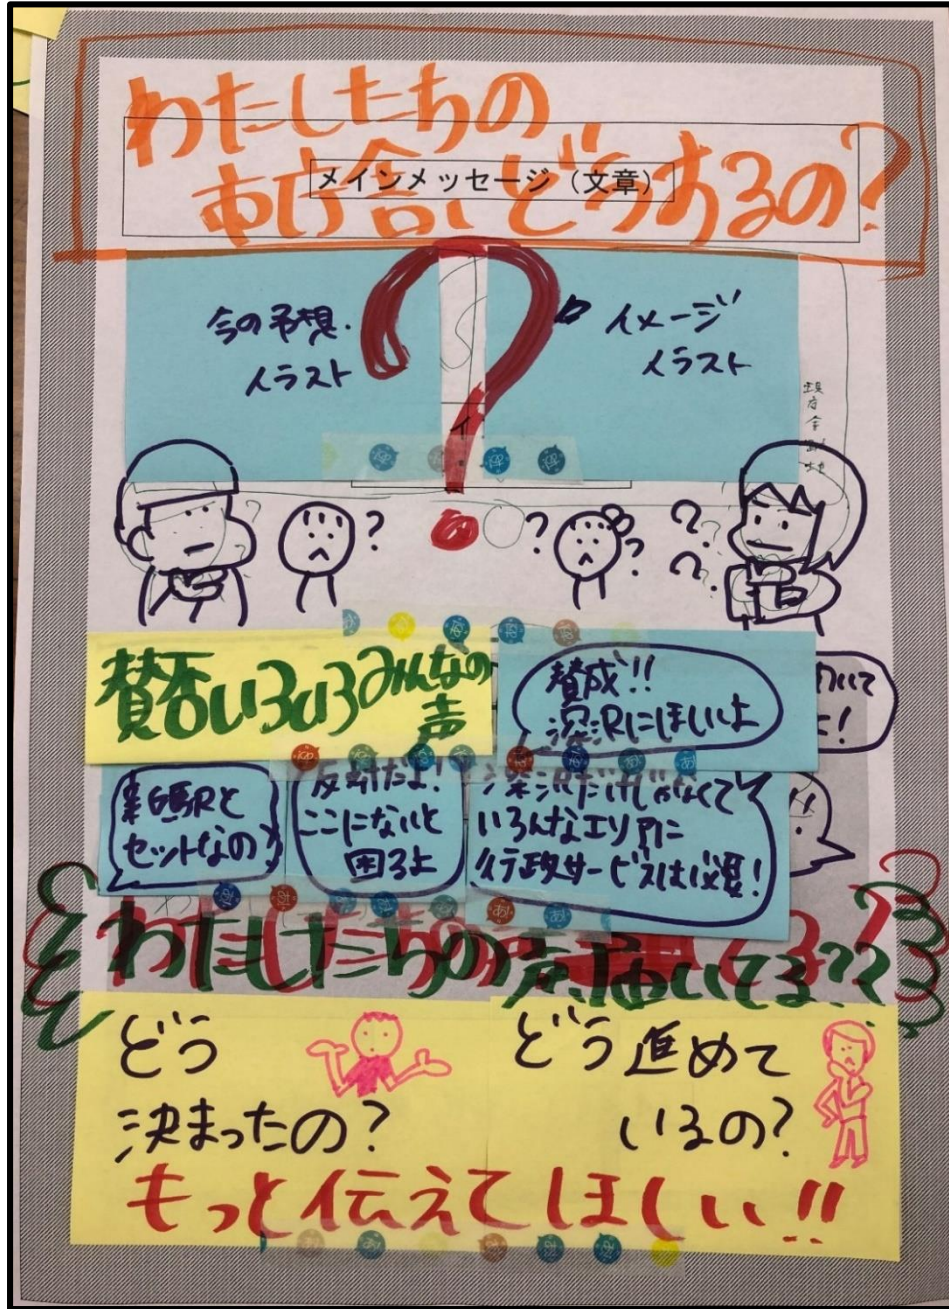 わたしたちの
市庁舎どうするの?
メインメッセージ(文章)
今の予想
イラスト
イメージ
イラスト
?
イ
? ? ? ? ?
賛否いろいろみんなの
声
賛成!!
深沢にほしいよ
新駅と
セットなの?
反対だよ!
ここにないと
困るよ
深沢だけじゃなくて
いろんなエリアに
行政サービスは必要!
わたしたちの声聴いてる??
どう
決まったの?
どう進めて
いるの?
もっと伝えてほしい!!